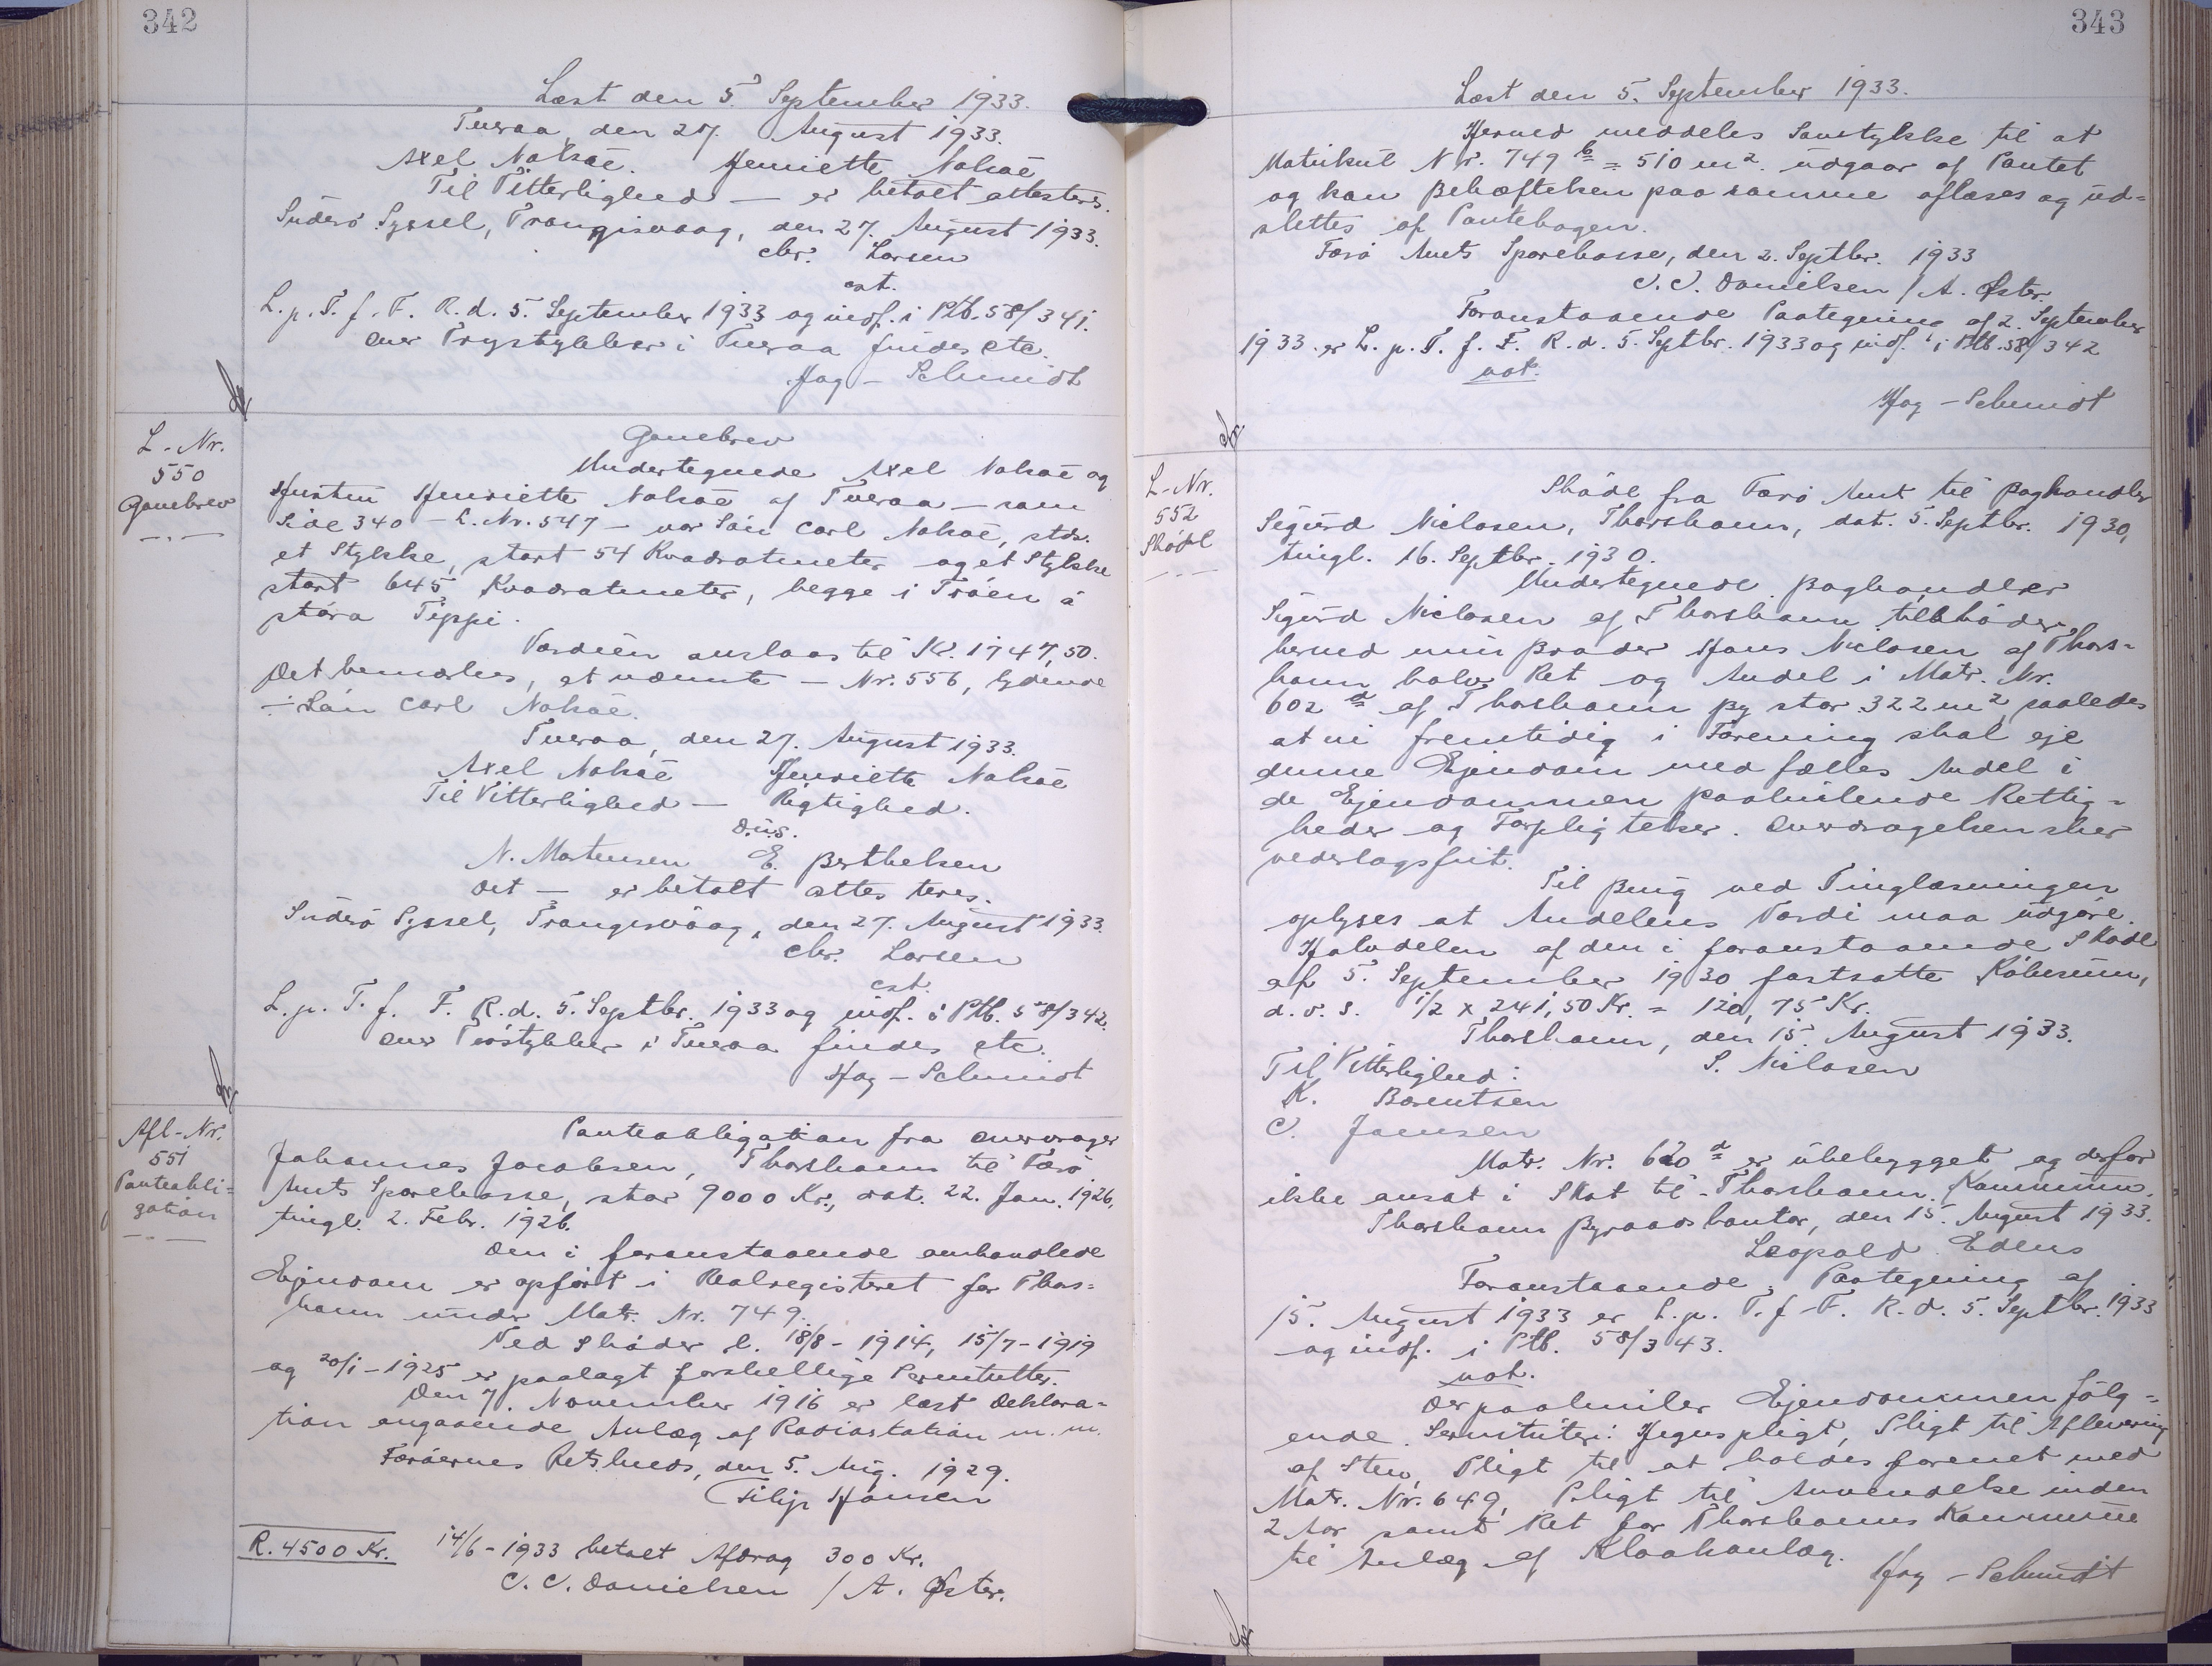 342
Læst den 5. September 1933.
Tveraa, den 27. August 1933.
Axel Nolsøe. Henriette Nolsøe
Til Vitterlighed — er betalt attesteres.
Suderø Syssel, Trangisvaag, den 27. August 1933.
Chr. Larsen
cst.
L. p. T. f. F. R. d. 5. September 1933 og indf. i Ptb. 58/341.
Over Trøstykker i Tveraa findes etc.
Høg - Schmidt
L - Nr.
550
Gavebrev
Gavebrev
Undertegnede Axel Nolsøe og
Hustru Henriette Nolsøe af Tveraa — som
Side 340 — L. Nr. 547 — vor Søn Carl Nolsøe, stds.
et Stykke, stort 54 Kvadratmeter og et Stykke
stort 645 Kvadratmeter, begge i Trøen á
stóra Tippi.
Værdien anslaas til Kr. 1747,50.
Det bemærkes, at nævnte — Nr. 556, lydende
— Søn Carl Nolsøe.
Tveraa, den 27. August 1933.
Axel Nolsøe Henriette Nolsøe
Til Vitterlighed — Rigtighed.
D.u.s.
N. Mortensen E. Berthelsen
Det — er betalt attesteres.
Suderø Syssel, Trangisvaag, den 27. August 1933.
Chr. Larsen
cst.
L. p. T. f. F. R. d. 5. Septbr. 1933 og indf. i Ptb. 58/342.
Over Trøstykker i Tveraa findes etc.
Høg - Schmidt
Afl - Nr.
551
Panteobli=
gation
Panteobligation fra Overdrager
Johannes Jacobsen, Thorshavn til Færø
Amts Sparekasse, stor 9000 Kr., dat. 22. Jan. 1926,
tingl. 2. Febr. 1926.
Den i foranstaaende omhandlede
Ejendom er opført i Realregistret for Thors=
havn under Matr. Nr. 749.
Ved Skøder l. 18/8 - 1914, 15/7 - 1919
og 20/1 - 1925 er paalagt forskellige Servitutter.
Den 7. November 1916 er læst Deklara=
tion angaaende Anlæg af Radiostation m. m.
Færøernes Retskreds, den 5. Aug. 1929.
Filip Hansen
R. 4500 Kr. 14/6 - 1933 betalt Afdrag 300 Kr.
C. C. Danielsen / A. Øster.
343
Læst den 5. September 1933.
Herved meddeles Samtykke til at
Matrikul Nr. 749 b = 510 m². udgaar af Pantet
og kan Behæftelsen paa samme aflæses og ud=
slettes af Pantebogen.
Færø Amts Sparekasse, den 2. Septbr. 1933
C. C. Danielsen / A. Øster.
Foranstaaende Paategning af 2. September
1933 er L. p. T. f. F. R. d. 5. Septbr. 1933 og indf. i Ptb. 58/342
not.
Høg - Schmidt
L - Nr.
552
Skøde
Skøde fra Færø Amt til Boghandler
Sigurd Niclasen, Thorshavn, dat. 5. Septbr. 1930,
tingl. 16. Septbr. 1930.
Undertegnede Boghandler
Sigurd Niclasen af Thorshavn tilskøder
herved min Broder Hans Niclasen af Thors=
havn halv Ret og Andel i Matr. Nr.
602 d af Thorshavn By stor 322 m² saaledes
at vi fremtidig i Forening skal eje
denne Ejendom med fælles Andel i
de Ejendommen paahvilende Rettig=
heder og Forpligtelser. Overdragelsen sker
vederlagsfrit.
Til Brug ved Tinglæsningen
oplyses at Andelens Værdi maa udgøre.
Halvdelen af den i foranstaaende Skøde
af 5. September 1930 fastsatte Købesum,
d. v. s. 1/2 x 241,50 Kr. = 120,75 Kr.
Thorshavn, den 15. August 1933.
Til Vitterlighed: S. Niclasen
K. Bærentsen
C. Joensen
Matr. Nr. 620 d er ubebygget og derfor
ikke ansat i Skat til Thorshavn Kommune.
Thorshavn Byraads kontor, den 15. August 1933.
Leopold Edens
Foranstaaende Paategning af
15. August 1933 er L. p. T. f. F. R. d. 5. Septbr. 1933
og indf. i Ptb. 58/343.
not.
Der paahviler Ejendommen følg=
ende Servituter: Hegnspligt, Pligt til Aflevering
af Sten, Pligt til at holdes forenet med
Matr. Nr. 649, Pligt til Anvendelse inden
2 Aar samt Ret for Thorshavns Kommune
til Anlæg af Kloakanlæg.
Høg - Schmidt